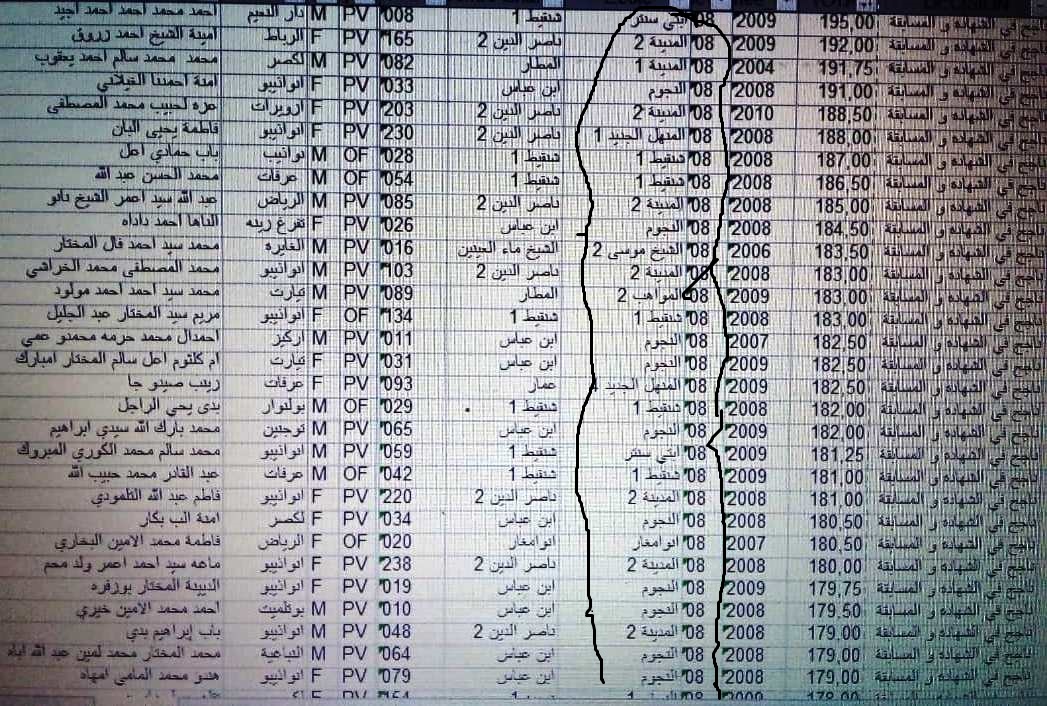 احمد محمد احمد أحمد أجيد دار النعيم M PV 008 شنقيط 1 ايتي سنتر 08 2009 195,00 ناجح في الشهادة و المسابقة
امينة الشيخ احمد زروق الرباط F PV 165 ناصر الدين 2 المدينة 2 08 2009 192,00 ناجح في الشهادة و المسابقة
محمد محمد سالم احمد يعقوب لكصر M PV 082 المطار المدينة 1 08 2004 191,75 ناجح في الشهادة و المسابقة
امنة احمدنا الخيلاني انواذيبو F PV 033 ابن عباس النجوم 08 2008 191,00 ناجح في الشهادة و المسابقة
عزه لحبيب محمد المصطفى ازويرات F PV 203 ناصر الدين 2 المدينة 2 08 2010 188,50 ناجح في الشهادة و المسابقة
فاطمة يحيى البان انواذيبو F PV 230 ناصر الدين 2 المنهل الجديد 1 08 2008 188,00 ناجح في الشهادة و المسابقة
باب حمادي اعل نواذيب M OF 028 شنقيط 1 شنقيط 1 08 2008 187,00 ناجح في الشهادة و المسابقة
محمد الحسن عبد الله عرفات M OF 054 شنقيط 1 شنقيط 1 08 2008 186,50 ناجح في الشهادة و المسابقة
عبد الله سيد اعمر الشيخ نانو الرياض M PV 085 ناصر الدين 2 المدينة 2 08 2008 185,00 ناجح في الشهادة و المسابقة
الناها احمد داداه تفرغ زينه F PV 026 ابن عباس النجوم 08 2008 184,50 ناجح في الشهادة و المسابقة
محمد سيد احمد فال المختار الغايره M PV 016 الشيخ ماء العينين الشيخ موسى 2 08 2006 183,50 ناجح في الشهادة و المسابقة
محمد المصطفى محمد الخراشي انواذيبو M PV 103 ناصر الدين 2 المدينة 2 08 2008 183,00 ناجح في الشهادة و المسابقة
محمد سيد احمد احمد مولود تيارت M PV 089 المطار المواهب 2 08 2009 183,00 ناجح في الشهادة و المسابقة
مريم سيد المختار عبد الجليل انواذيبو F OF 134 شنقيط 1 شنقيط 1 08 2008 183,00 ناجح في الشهادة و المسابقة
احمدال محمد حرمه محمدو عمي اركيز M PV 011 ابن عباس النجوم 08 2007 182,50 ناجح في الشهادة و المسابقة
ام كلثوم اعل سالم المختار امبارك تيارت F PV 031 ابن عباس النجوم 08 2009 182,50 ناجح في الشهادة و المسابقة
زينب صيدو جا عرفات F PV 093 عمار المنهل الجديد 08 2009 182,50 ناجح في الشهادة و المسابقة
بدى يحي الراجل بولنوار M OF 029 شنقيط 1 شنقيط 1 08 2008 182,00 ناجح في الشهادة و المسابقة
محمد بارك الله سيدي ابراهيم توجنين M PV 065 ابن عباس النجوم 08 2009 182,00 ناجح في الشهادة و المسابقة
محمد سالم محمد الكوري المبروك انواذيبو M PV 059 شنقيط 1 ايتي سنتر 08 2009 181,25 ناجح في الشهادة و المسابقة
عبد القادر محمد حبيب الله عرفات M OF 042 شنقيط 1 شنقيط 1 08 2009 181,00 ناجح في الشهادة و المسابقة
فاطم عبد الله التلمودي انواذيبو F PV 220 ناصر الدين 2 المدينة 2 08 2008 181,00 ناجح في الشهادة و المسابقة
امنة الب بكار لكصر F PV 034 ابن عباس النجوم 08 2008 180,50 ناجح في الشهادة و المسابقة
فاطمة محمد الامين البخاري الرياض F OF 020 انوامغار انوامغار 08 2007 180,50 ناجح في الشهادة و المسابقة
ماهه سيد احمد اعمر ولد محم انواذيبو F PV 238 ناصر الدين 2 المدينة 2 08 2008 180,00 ناجح في الشهادة و المسابقة
الديينة المختار بوزفره انواذيبو F PV 019 ابن عباس النجوم 08 2009 179,75 ناجح في الشهادة و المسابقة
احمد محمد الامين خيري بوتلميت M PV 010 ابن عباس النجوم 08 2008 179,50 ناجح في الشهادة و المسابقة
باب إبراهيم بدي انواذيبو M PV 048 ناصر الدين 2 المدينة 2 08 2008 179,00 ناجح في الشهادة و المسابقة
محمد المختار محمد لمين عبد الله اباه النباغية M PV 064 ابن عباس النجوم 08 2008 179,00 ناجح في الشهادة و المسابقة
هندو محمد المامي امهاه انواذيبو F PV 079 ابن عباس النجوم 08 2008 179,00 ناجح في الشهادة و المسابقة